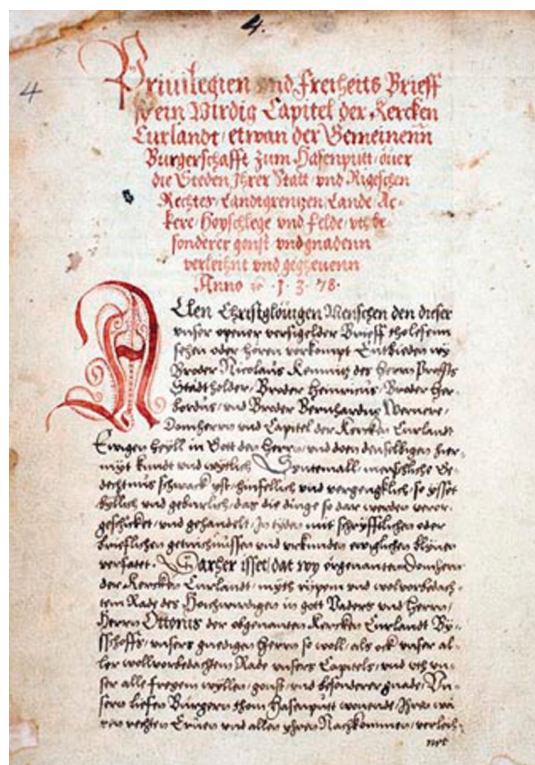 4.
4
Priuilegien vnd freiheits Brieff
so ein Wirdig Capitel der Kercken
Curlandt / etwan der Gemeinenn
Burgerschafft zum Hasenputt / ouer
die Steden Jhrer Statt vnd Rigeschen
Rechtes / Landtgrentzen / Lande Ac-
kere / Hoyschlege vnd felde / vth be-
sonderer gonst vnd gnadenn
verlehnt vnd gegheuenn
Anno 1378.
Allen Christglöuigen Menschen den dieser
vnser opener versigelder Brieff tho lesenn
sehen oder hören vorkompt Entbieden wy
Broder Nicolaus des Herrn Prawsts
Stadtholder / Broder Heinricus / Broder Her-
bordus / vnd Broder Bernhardus Wernere /
Domherrn vnd Capitel der Kercken Curlandt
Ewigen heyll in Gott den Herrn / vnd doen den seluigen hier-
myt kundt vnd wytlich Syntemall menschliche Ge-
dechtnis schwack yst / hinfellich vnd vergengklich / so ysset
byllich vnd geburlich / das die dinge so dar werden veror-
geschicket / vnd gehandelt / In tyden mit schryfftlichen oder
brieflichen getuichnüssen vnd vrkunden ewiglichen blyuen
verfatet. Daher isset / dat wy ergenanten Domherrn
der Kercken Curlandt / myth rypem vnd wolvorbedach-
tem Rade des Hochwirdigen in gott Vaders vnd Herrn /
Herrn Ottonis der obgenanten Kercken Curlandt By-
sschoffs / vnsers gnedigen Herrn so woll / als ock vnser al-
ler wollvorbedachtem Rade vnsers Capitels / vnd vth vn-
ser alle freyem wyllen / gonst / vnd besonderer gnade / Vn-
sern liefen Burgern thom Hasenputt wonende / Ihren wa-
ren rechten Eruen vnd allen yhren Nachkommen / verleh-
net